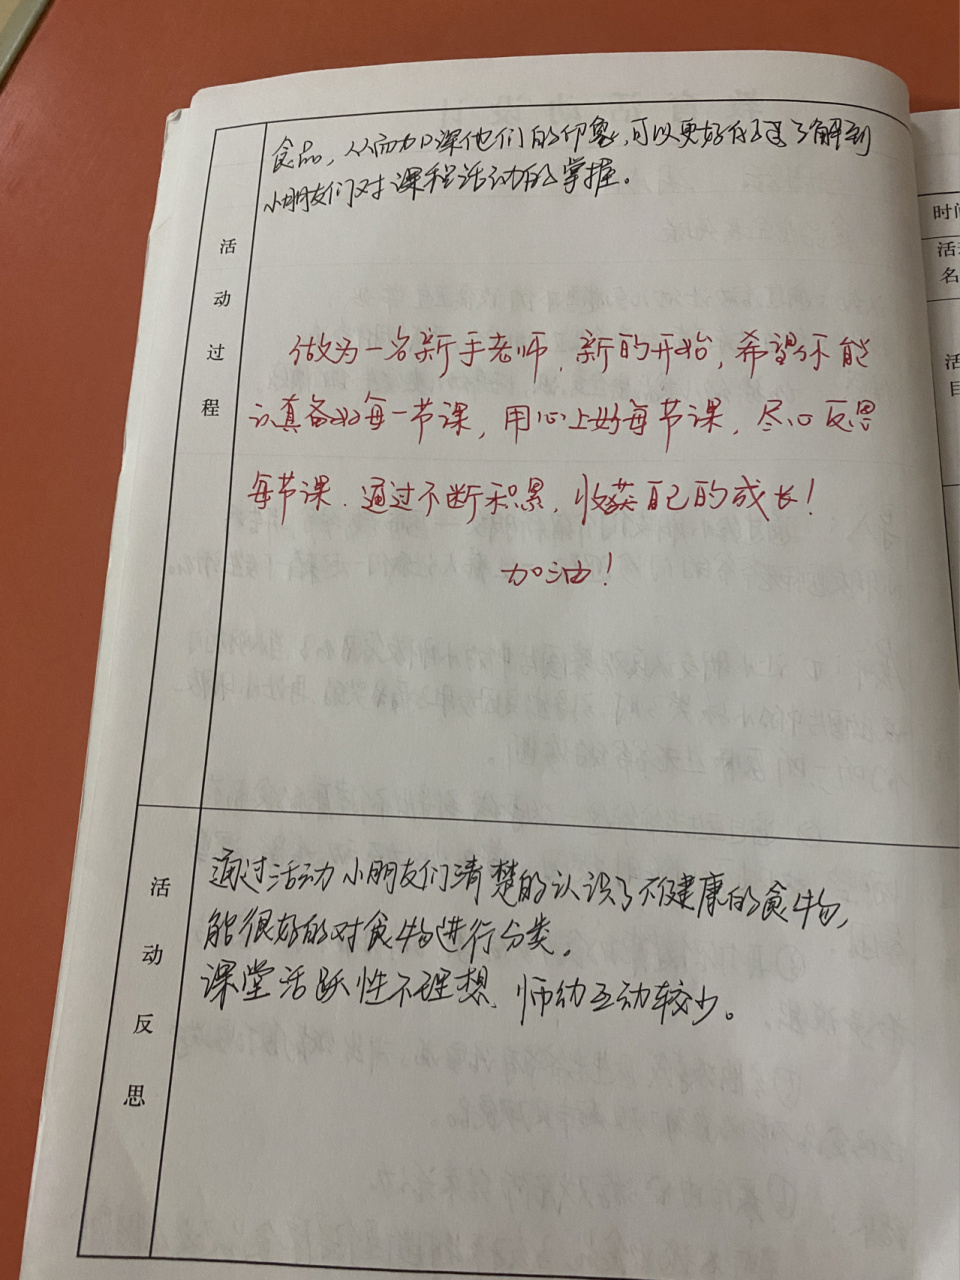 食品，从而加深他们的印象，可以更好的了解到
小朋友们对课程活动的掌握。
活动过程
做为一名新手老师，新的开始，希望你能
认真备好每一节课，用心上好每节课，尽心反思
每节课．通过不断积累，收获自己的成长！
加油！
活动反思
通过活动小朋友们清楚的认识了不健康的食物，
能很好的对食物进行分类，
课堂活跃性不理想、师幼互动较少。
时间
活
名
活
目